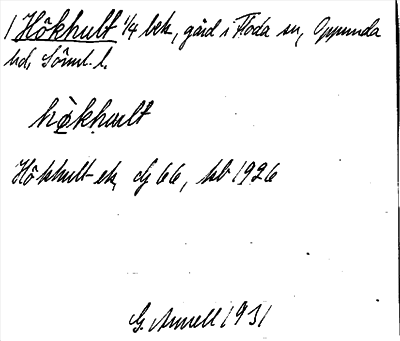 1 Hökhult 1/4 bek, gård i Floda sn, Oppunda
hd, Söml. l.
hö̀khult
Hökhult ek, df 66, kb 1926
G. Annell 1931